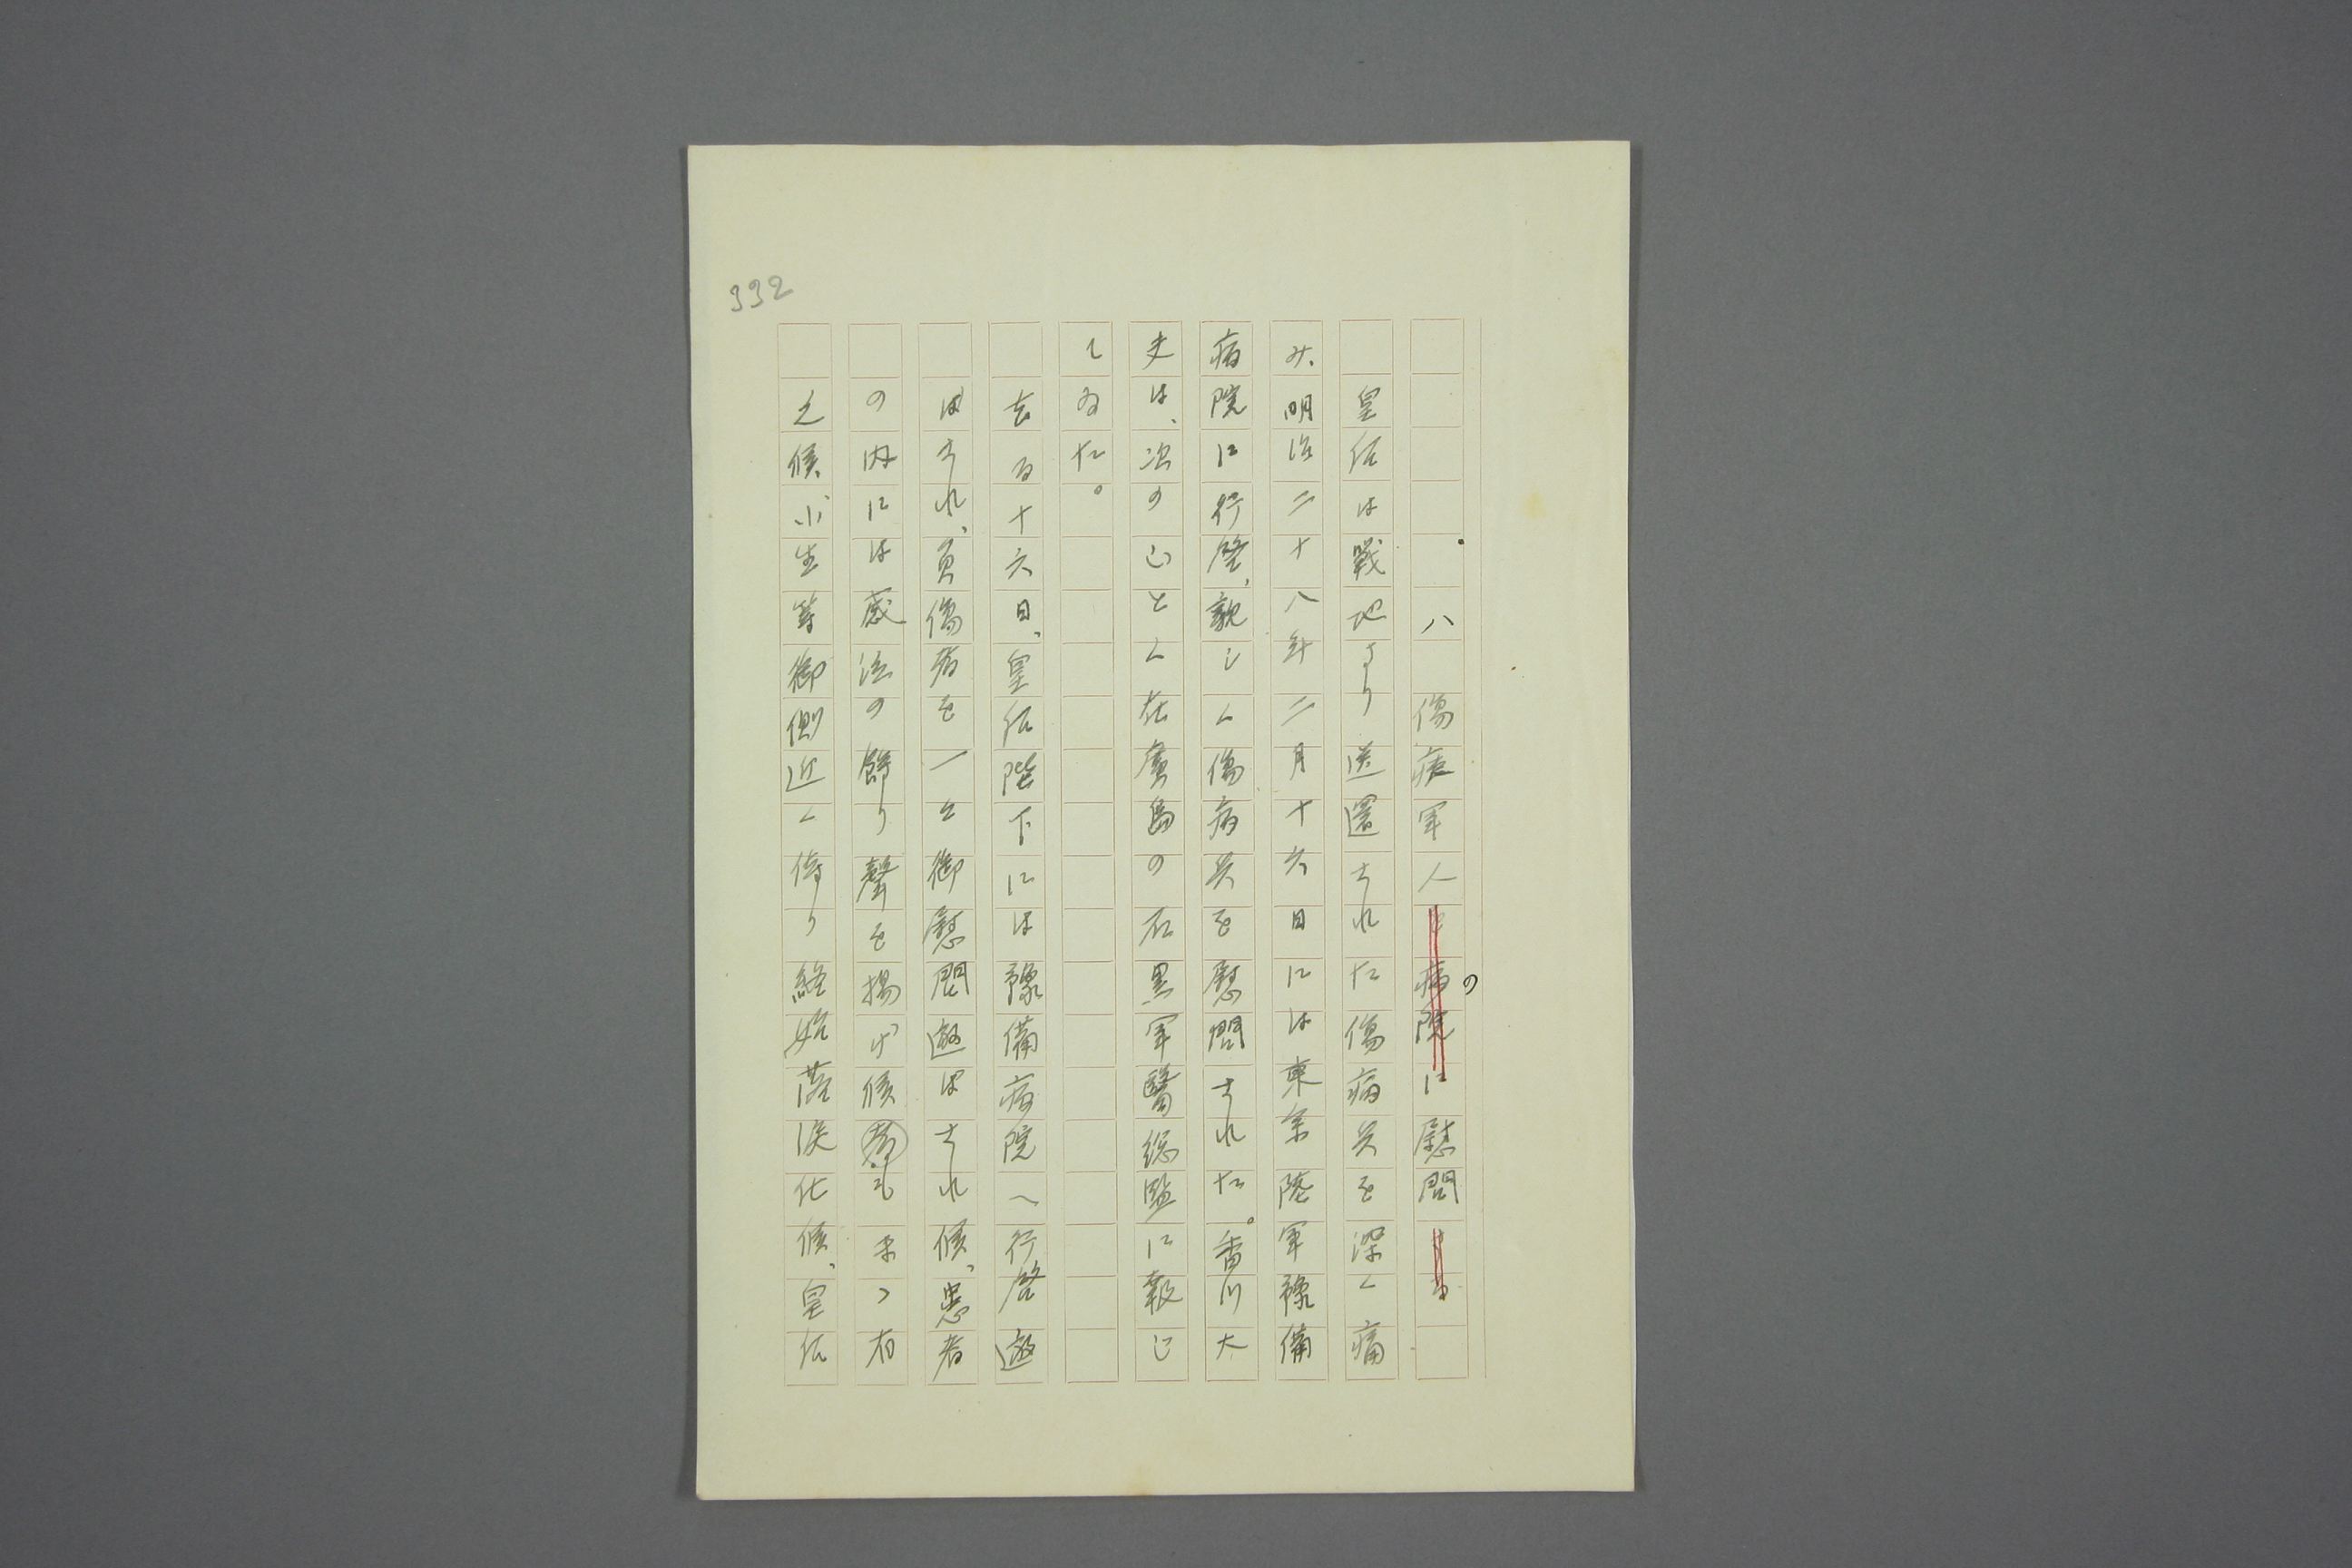 332
八 傷痍軍人を病院の に慰問する
皇后は戰地より送還された傷病兵を深く痛
み、明治二十八年二月十六日には東京陸軍豫備
病院に行啓、親しく傷病兵を慰問された。香川大
夫は、次のごとく在廣島の石黒軍醫総監に報じ
てゐた。
去る十六日、皇后陛下には豫備病院へ行啓遊
ばされ、負傷者を一々御慰問遊ばされ候、患者
の内には感泣の餘り聲を揚げ候者も まゝ有
之候、小生等御側近く侍り終始落涙仕候、皇后